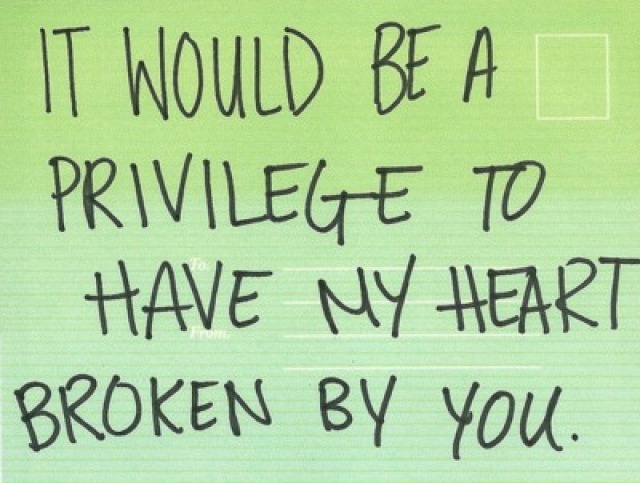 IT WOULD BE A
PRIVILEGE TO
To:
HAVE MY HEART
From:
BROKEN BY YOU.